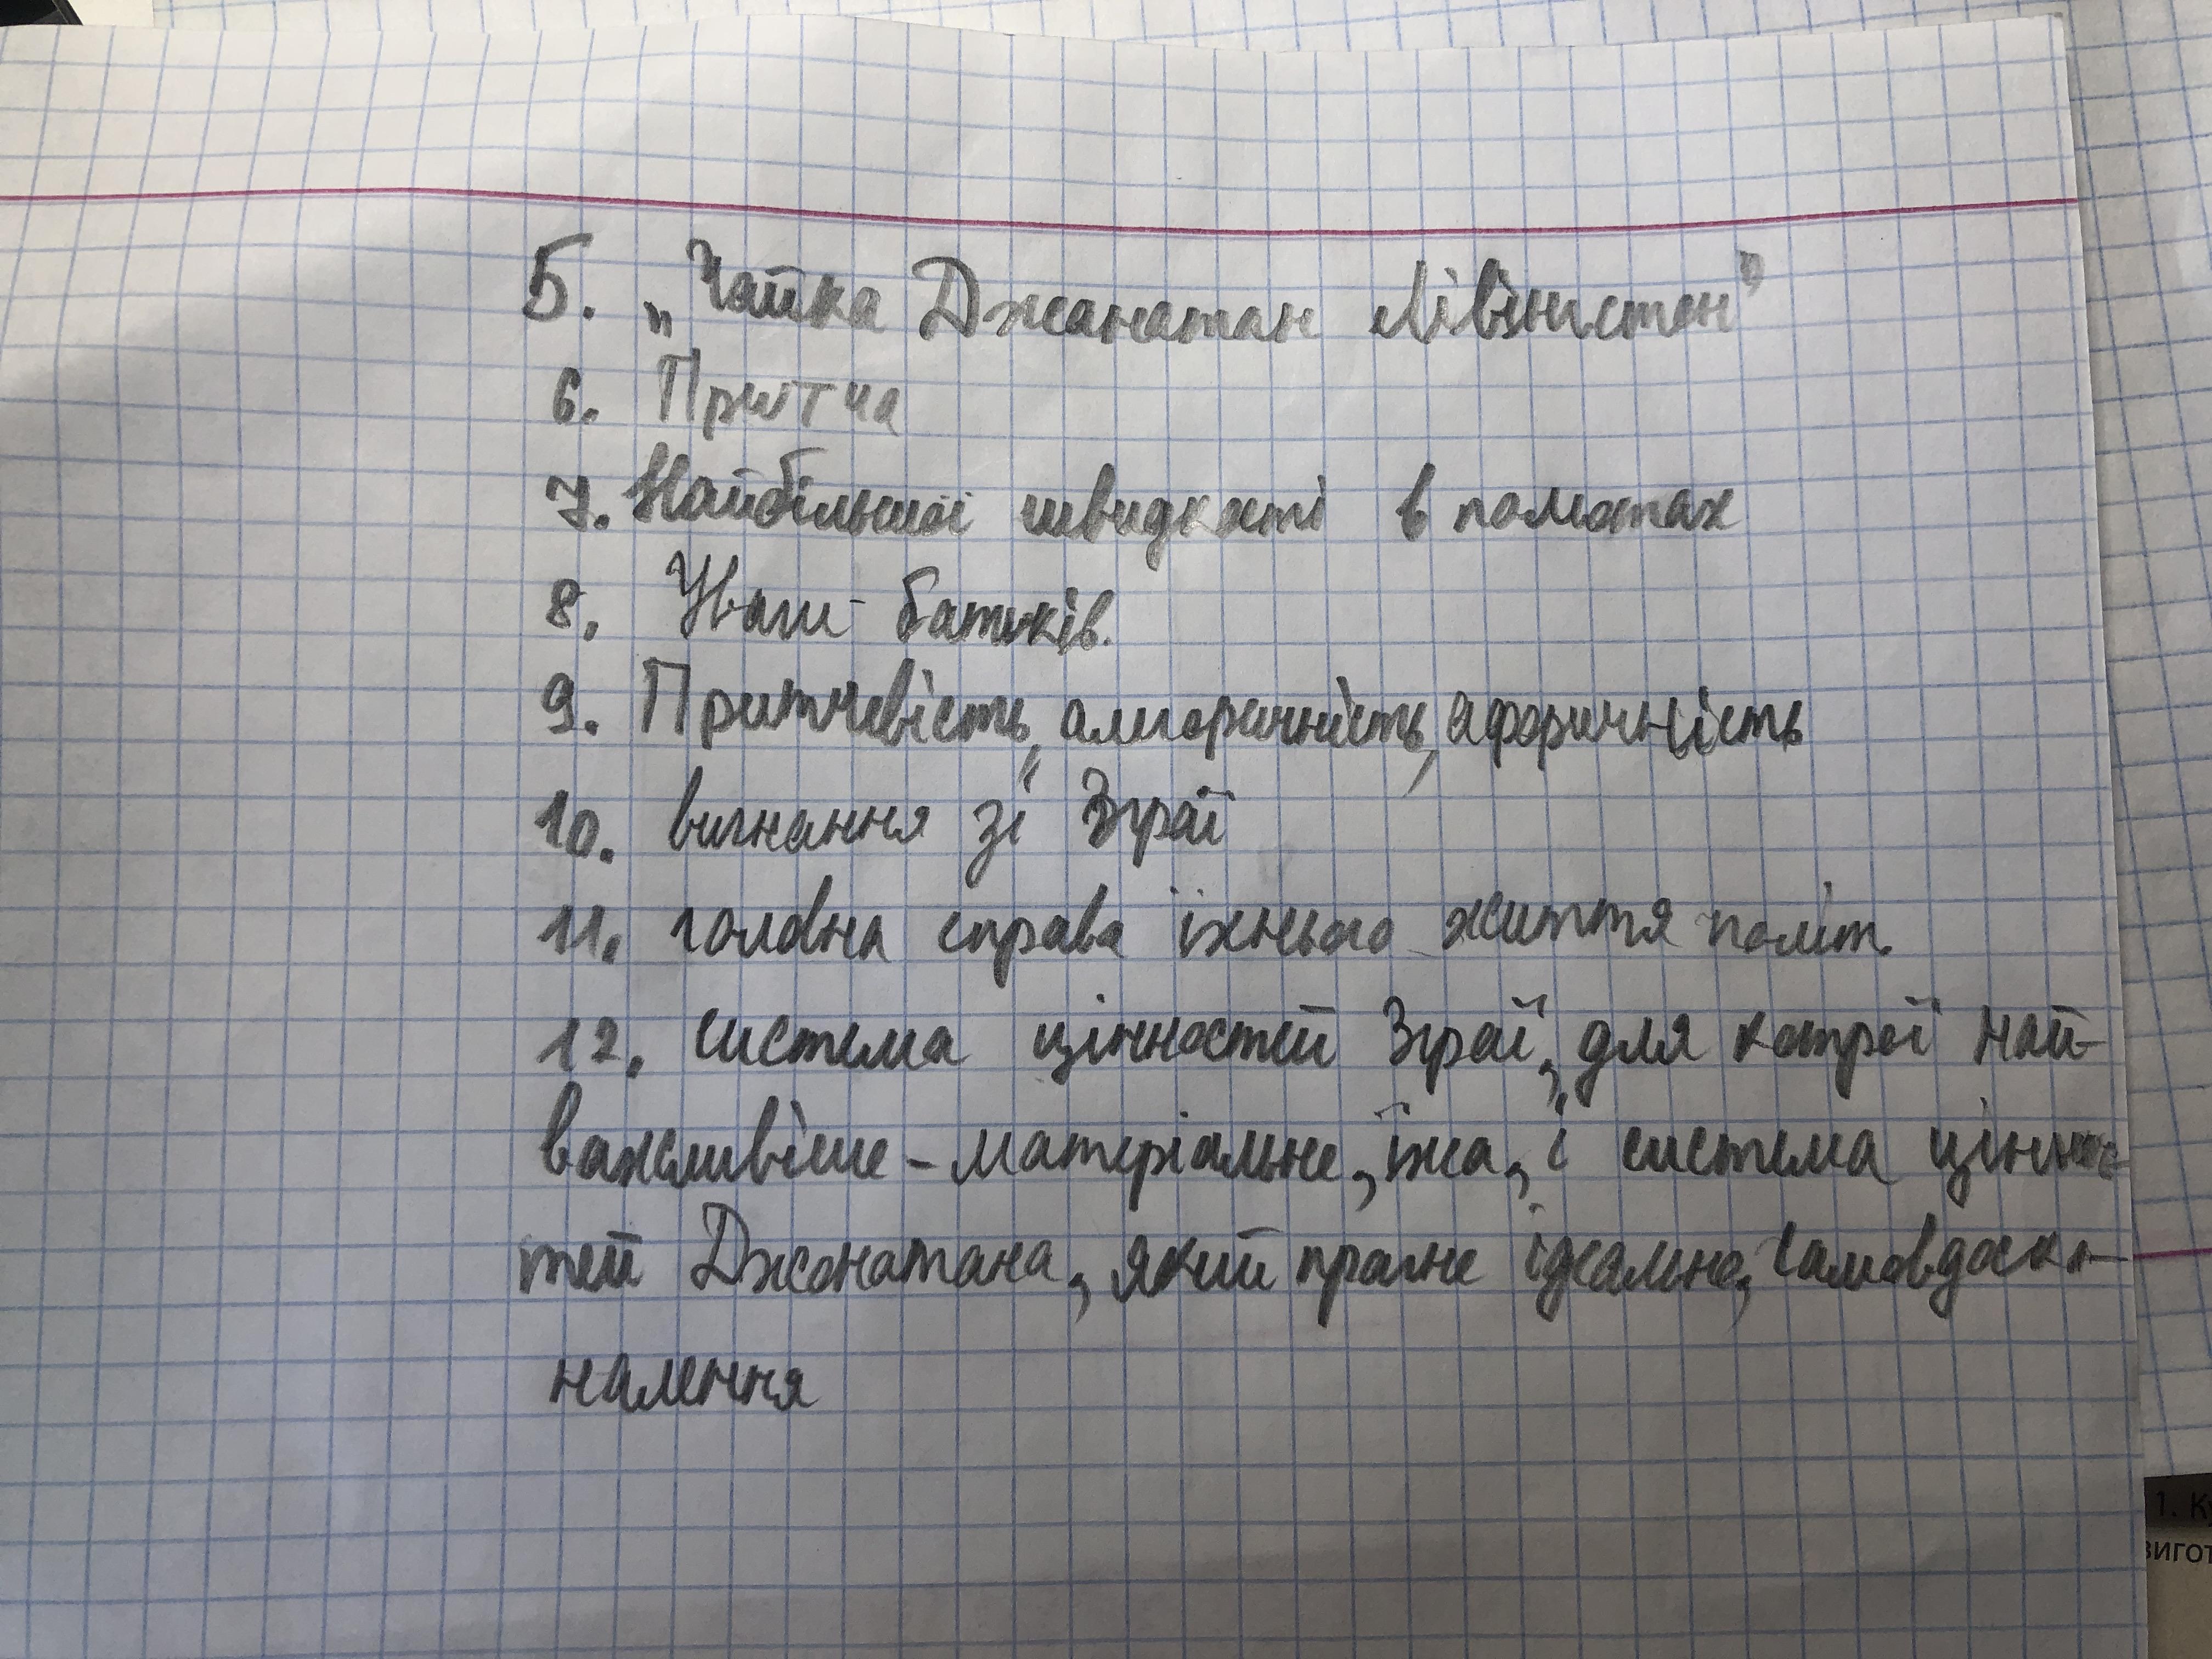 5. „Чайка Джонатан Лівінгстон"
6. Притча
7. Найбільшої швидкості в польотах
8. Уваги батьків.
9. Притчевість, алегоричність, афоричність
10. вигнання зі Зграї
11. головна справа їхнього життя політ.
12. система цінностей Зграї, для котрої най-
важливіше – матеріальне, їжа, і системаціннос-
тей Джонатана, який прагне ідеально, самовдоско-
налення
1. К
вигот